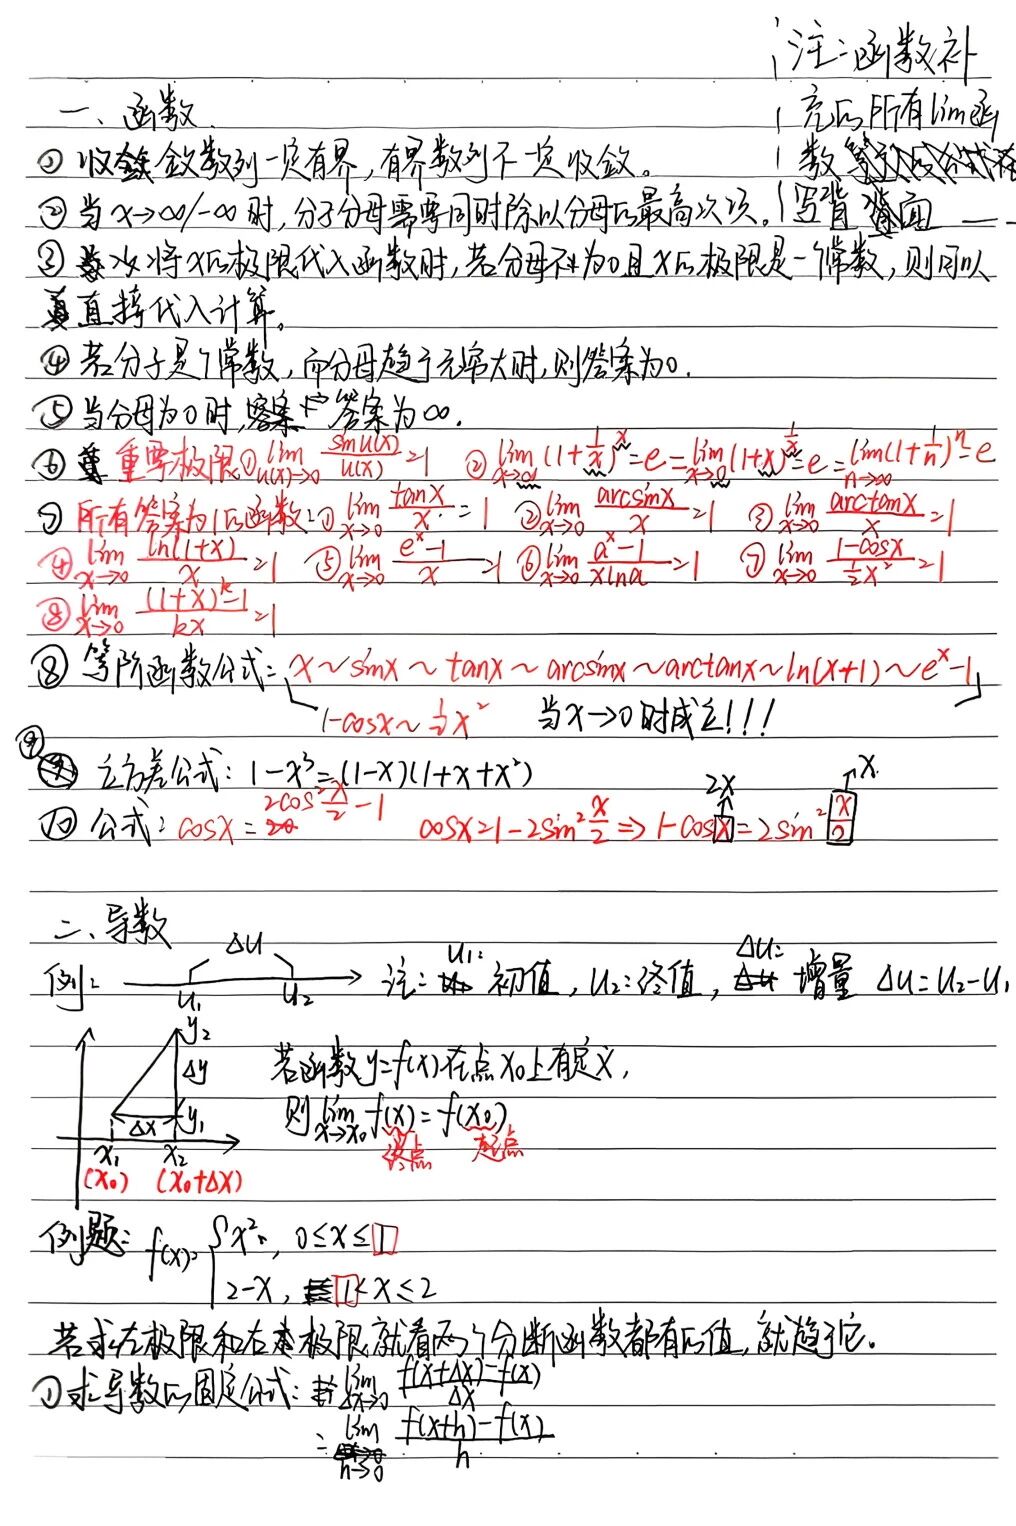 注:函数补
充的所有lim函
数
写背面
一、函数
① 收敛数列一定有界,有界数列不一定收敛。
② 当x→∞/-∞时,分子分母需要同时除以分母的最高次项。
③ 将x的极限代入函数时,若分母不为0且x的极限是一个常数,则可以
直接代入计算。
④ 若分子是个常数,而分母趋于无穷大时,则答案为0.
⑤ 当分母为0时,答案为∞.
⑥ 重要极限① lim u(x)→0 sinu(x)/u(x) =1 ② lim x→∞ (1+1/x)^x=e=lim x→0 (1+x)^(1/x)=e=lim n→∞ (1+1/n)^n=e
⑦ 所有答案为1的函数:① lim x→0 tanx/x =1 ② lim x→0 arcsinx/x =1 ③ lim x→0 arctanx/x =1
④ lim x→0 ln(1+x)/x =1 ⑤ lim x→0 (e^x-1)/x =1 ⑥ lim x→0 (a^x-1)/(xlna) =1 ⑦ lim x→0 (1-cosx)/(½x²) =1
⑧ lim x→0 ((1+x)^k-1)/(kx) =1
⑧ 等阶函数公式: x~sinx~tanx~arcsinx~arctanx~ln(x+1)~e^x-1
1-cosx~½x² 当x→0时成立!!!
⑨ 立方差公式: 1-x³=(1-x)(1+x+x²)
2x x
⑩ 公式: cosx=2cos²x/2-1 cosx=1-2sin²x/2 ⇒ 1-cosx=2sin²x/2
二、导数
Δu
例: u₁ u₂ 注: u₁: 初值, u₂:终值, Δu: 增量 Δu=u₂-u₁
y₂
Δy
若函数y=f(x)在点x₀上有定义,
Δx y₁
则 lim x→x₀ f(x)=f(x₀)
终点 起点
x₁ x₂
(x₀) (x₀+Δx)
例题: f(x)= { x², 0≤x≤1
2-x, 1<x≤2
若求左极限和右极限,就看两个分断函数都有的值,就趋于它。
① 求导数的固定公式: lim Δx→0 (f(x+Δx)-f(x))/Δx
= lim h→0 (f(x+h)-f(x))/h